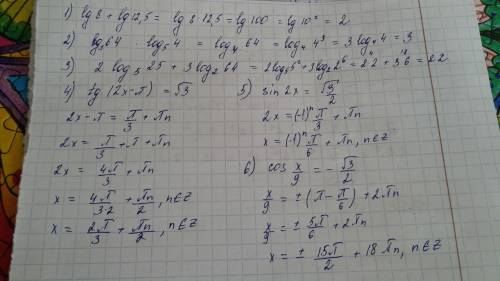 1) lg 8 + lg 12,5 = lg 8·12,5 = lg 100 = lg 10² = 2
2) log₅64 · log₅4 = log₄ 64 = log₄ 4³ = 3 log₄ 4 = 3
3) 2 log₅ 25 + 3 log₂ 64 = 2log₅5² + 3log₂2⁶ = 2·2 + 3·6 = 22
4) tg (2x-π) = √3
2x-π = π/3 + πn
2x = π/3 + π + πn
2x = 4π/3 + πn
x = 4π/3·2 + πn/2, n∈Z
x = 2π/3 + πn/2, n∈Z
5) sin 2x = √3/2
2x = (-1)ⁿ π/3 + πn
x = (-1)ⁿ π/6 + πn, n∈Z
6) cos x/9 = - √3/2
x/9 = ± (π - π/6) + 2πn
x/9 = ± 5π/6 + 2πn
x = ± 15π/2 + 18πn, n∈Z